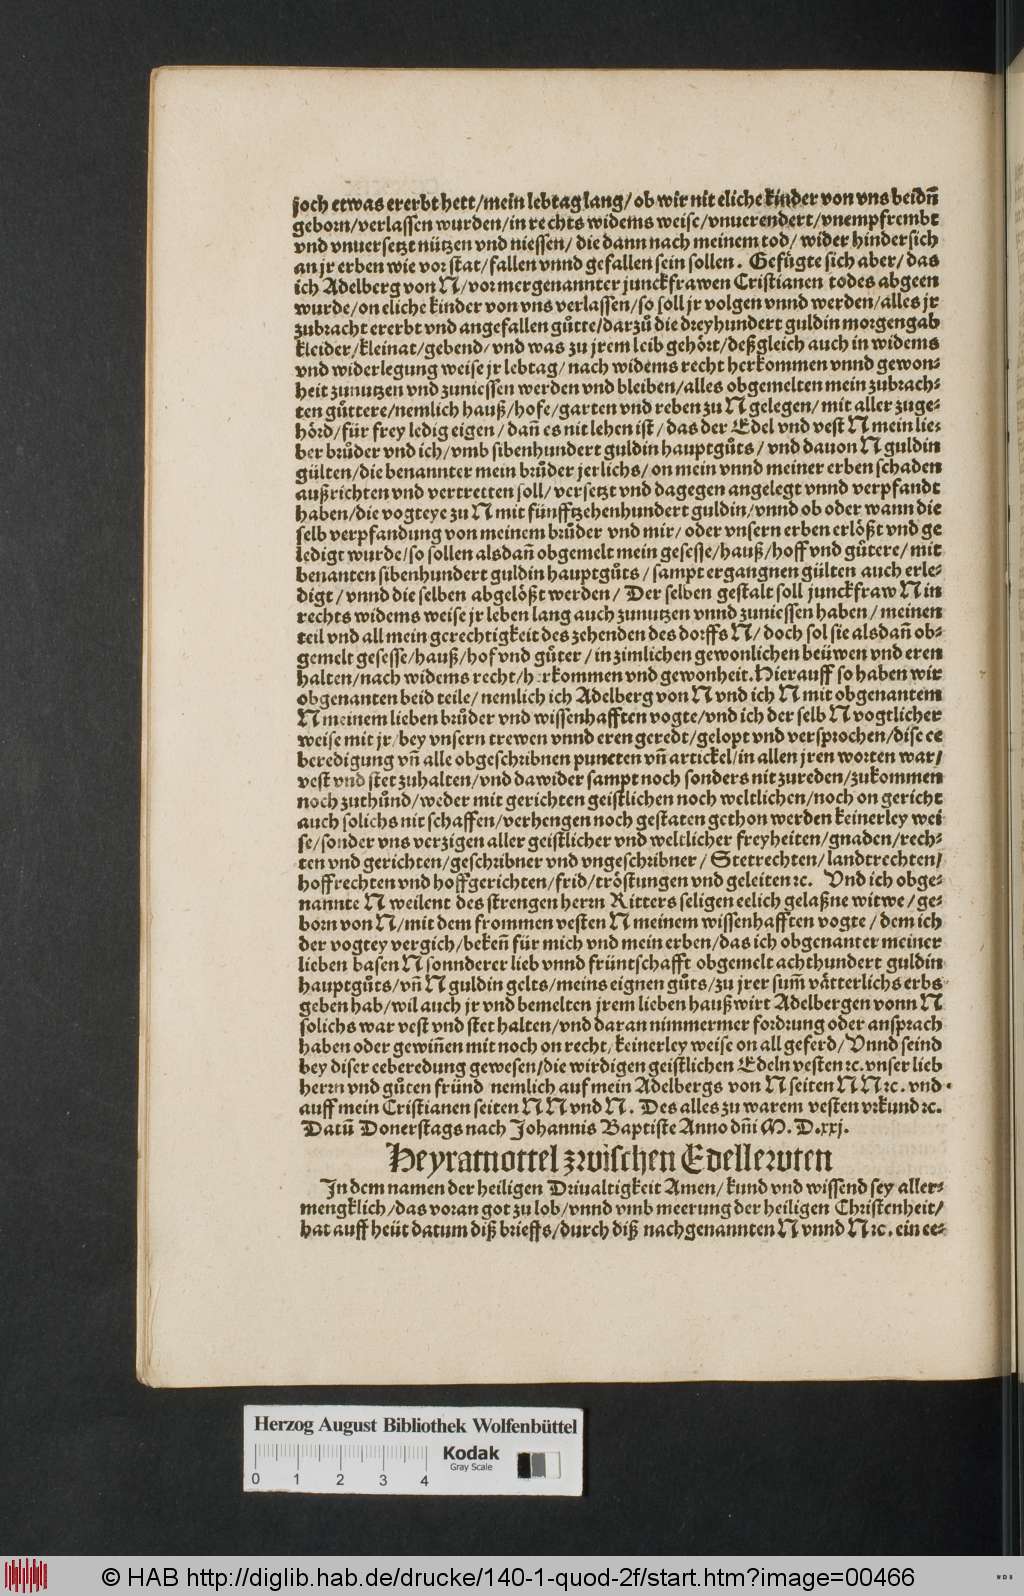 joch etwas ererbt hett/mein lebtag lang/ob wir nit eliche kinder von vns beidn̄
geborn/verlassen wurden/in rechts widems weise/vnuerendert/vnempfrembt
vnd vnuersetzt nützen vnd niessen/ die dann nach meinem tod/ wider hindersich
an jr erben wie vor stat/fallen vnnd gefallen sein sollen. Gefügte sich aber/das
ich Adelberg von N/vor mergenannter junckfrawen Cristianen todes abgeen
wurde/on eliche kinder von vns verlassen/so soll jr volgen vnnd werden/alles jr
zubracht ererbt vnd angefallen gůtte/darzů die dreyhundert guldin morgengab
kleider/kleinat/gebend/vnd was zu jrem leib gehört/deßgleich auch in widems
vnd widerlegung weise jr lebtag/nach widems recht herkommen vnnd gewon-
heit zunutzen vnd zuniessen werden vnd bleiben/alles obgemelten mein zubrach-
ten gůttere/nemlich hauß/hofe/garten vnd reben zu N gelegen/mit aller zuge-
hörd/für frey ledig eigen/ dañ es nit lehen ist/das der Edel vnd vest N mein lie-
ber brůder vnd ich/vmb sibenhundert guldin hauptgůts/ vnd dauon N guldin
gülten/die benannter mein brůder jerlichs/on mein vnnd meiner erben schaden
außrichten vnd vertretten soll/versetzt vnd dagegen angelegt vnnd verpfandt
haben/die vogteye zu N mit fünfftzehenhundert guldin/vnnd ob oder wann die
selb verpfandung von meinem brůder vnd mir/oder vnsern erben erlößt vnd ge
ledigt wurde/so sollen alsdañ obgemelt mein gesesse/hauß/hoff vnd gůtere/mit
benanten sibenhundert guldin hauptgůts/sampt ergangnen gülten auch erle-
digt/vnnd die selben abgelößt werden/ Der selben gestalt soll junckfraw N in
rechts widems weise jr leben lang auch zunutzen vnnd zuniessen haben/meinen
teil vnd all mein gerechtigkeit des zehenden des dorffs N/doch sol sie alsdañ ob-
gemelt gesesse/hauß/hof vnd gůter/in zimlichen gewonlichen beüwen vnd eren
halten/nach widems recht/herkommen vnd gewonheit. Hierauff so haben wir
obgenanten beid teile/nemlich ich Adelberg von N vnd ich N mit obgenantem
N meinem lieben brůder vnd wissenhafften vogte/vnd ich der selb N vogtlicher
weise mit jr/bey vnsern trewen vnnd eren geredt/gelopt vnd versprochen/dise ee
beredigung vñ alle obgeschribnen puncten vñ artickel/in allen jren worten war/
vest vnd stet zuhalten/vnd dawider sampt noch sonders nit zureden/zukommen
noch zuthůnd/weder mit gerichten geistlichen noch weltlichen/noch on gericht
auch solichs nit schaffen/verhengen noch gestaten gethon werden keinerley wei
se/sonder vns verzigen aller geistlicher vnd weltlicher freyheiten/gnaden/rech-
ten vnd gerichten/geschribner vnd vngeschribner/ Stetrechten/landtrechten/
hoffrechten vnd hoffgerichten/frid/tröstungen vnd geleiten ꝛc. Vnd ich obge-
nannte N weilent des strengen herrn Ritters seligen eelich gelaßne witwe/ge-
born von N/mit dem frommen vesten N meinem wissenhafften vogte/dem ich
der vogtey vergich/bekeñ für mich vnd mein erben/das ich obgenanter meiner
lieben basen N sonnderer lieb vnnd früntschafft obgemelt achthundert guldin
hauptgůts/vñ N guldin gelts/meins eignen gůts/zu jrer sum̄ vätterlichs erbs
geben hab/wil auch jr vnd bemelten jrem lieben haußwirt Adelbergen vonn N
solichs war vest vnd stet halten/vnd daran nimmermer fordrung oder ansprach
haben oder gewiñen mit noch on recht/keinerley weise on all geferd/Vnnd seind
bey diser eeberedung gewesen/die wirdigen geistlichen Edeln vesten ꝛc. vnser lieb
herrn vnd gůten fründ nemlich auf mein Adelbergs von N seiten N N ꝛc. vnd
auff mein Cristianen seiten N N vnd N. Des alles zu warem vesten vrkund ꝛc.
Datū Donerstags nach Johannis Baptiste Anno dñi M. D. xxj.
Heyratnottel zwischen Edellewten
In dem namen der heiligen Driualtigkeit Amen/kund vnd wissend sey aller-
mengklich/das voran got zu lob/vnnd vmb meerung der heiligen Christenheit/
hat auff heüt datum diß brieffs/durch diß nachgenannten N vnnd N ꝛc. ein ee-
Herzog August Bibliothek Wolfenbüttel
Kodak
Gray Scale
0 1 2 3 4
© HAB http://diglib.hab.de/drucke/140-1-quod-2f/start.htm?image=00466